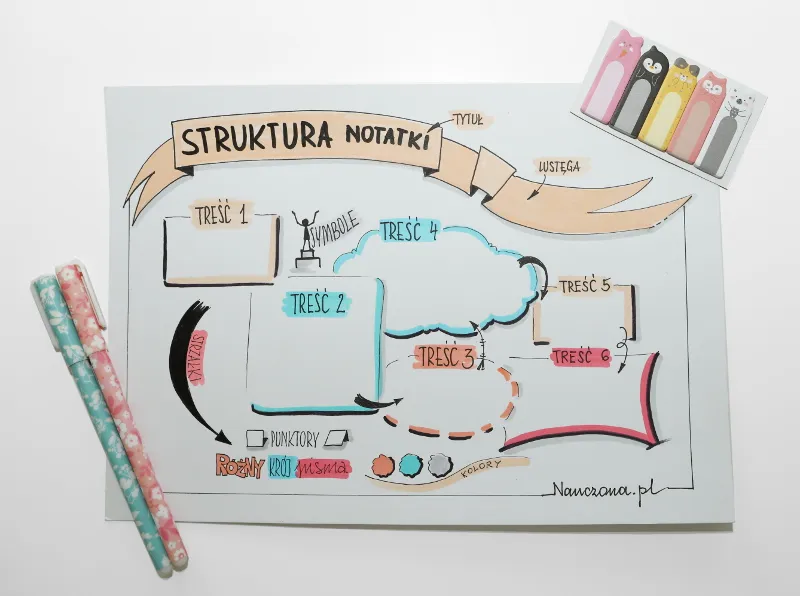 STRUKTURA NOTATKI
TYTUŁ
WSTĘGA
TREŚĆ 1
SYMBOLE
TREŚĆ 4
TREŚĆ 2
TREŚĆ 5
STRZAŁKI
TREŚĆ 3
TREŚĆ 6
PUNKTORY
RÓŻNY KRÓJ pisma
KOLORY
Nauczona.pl